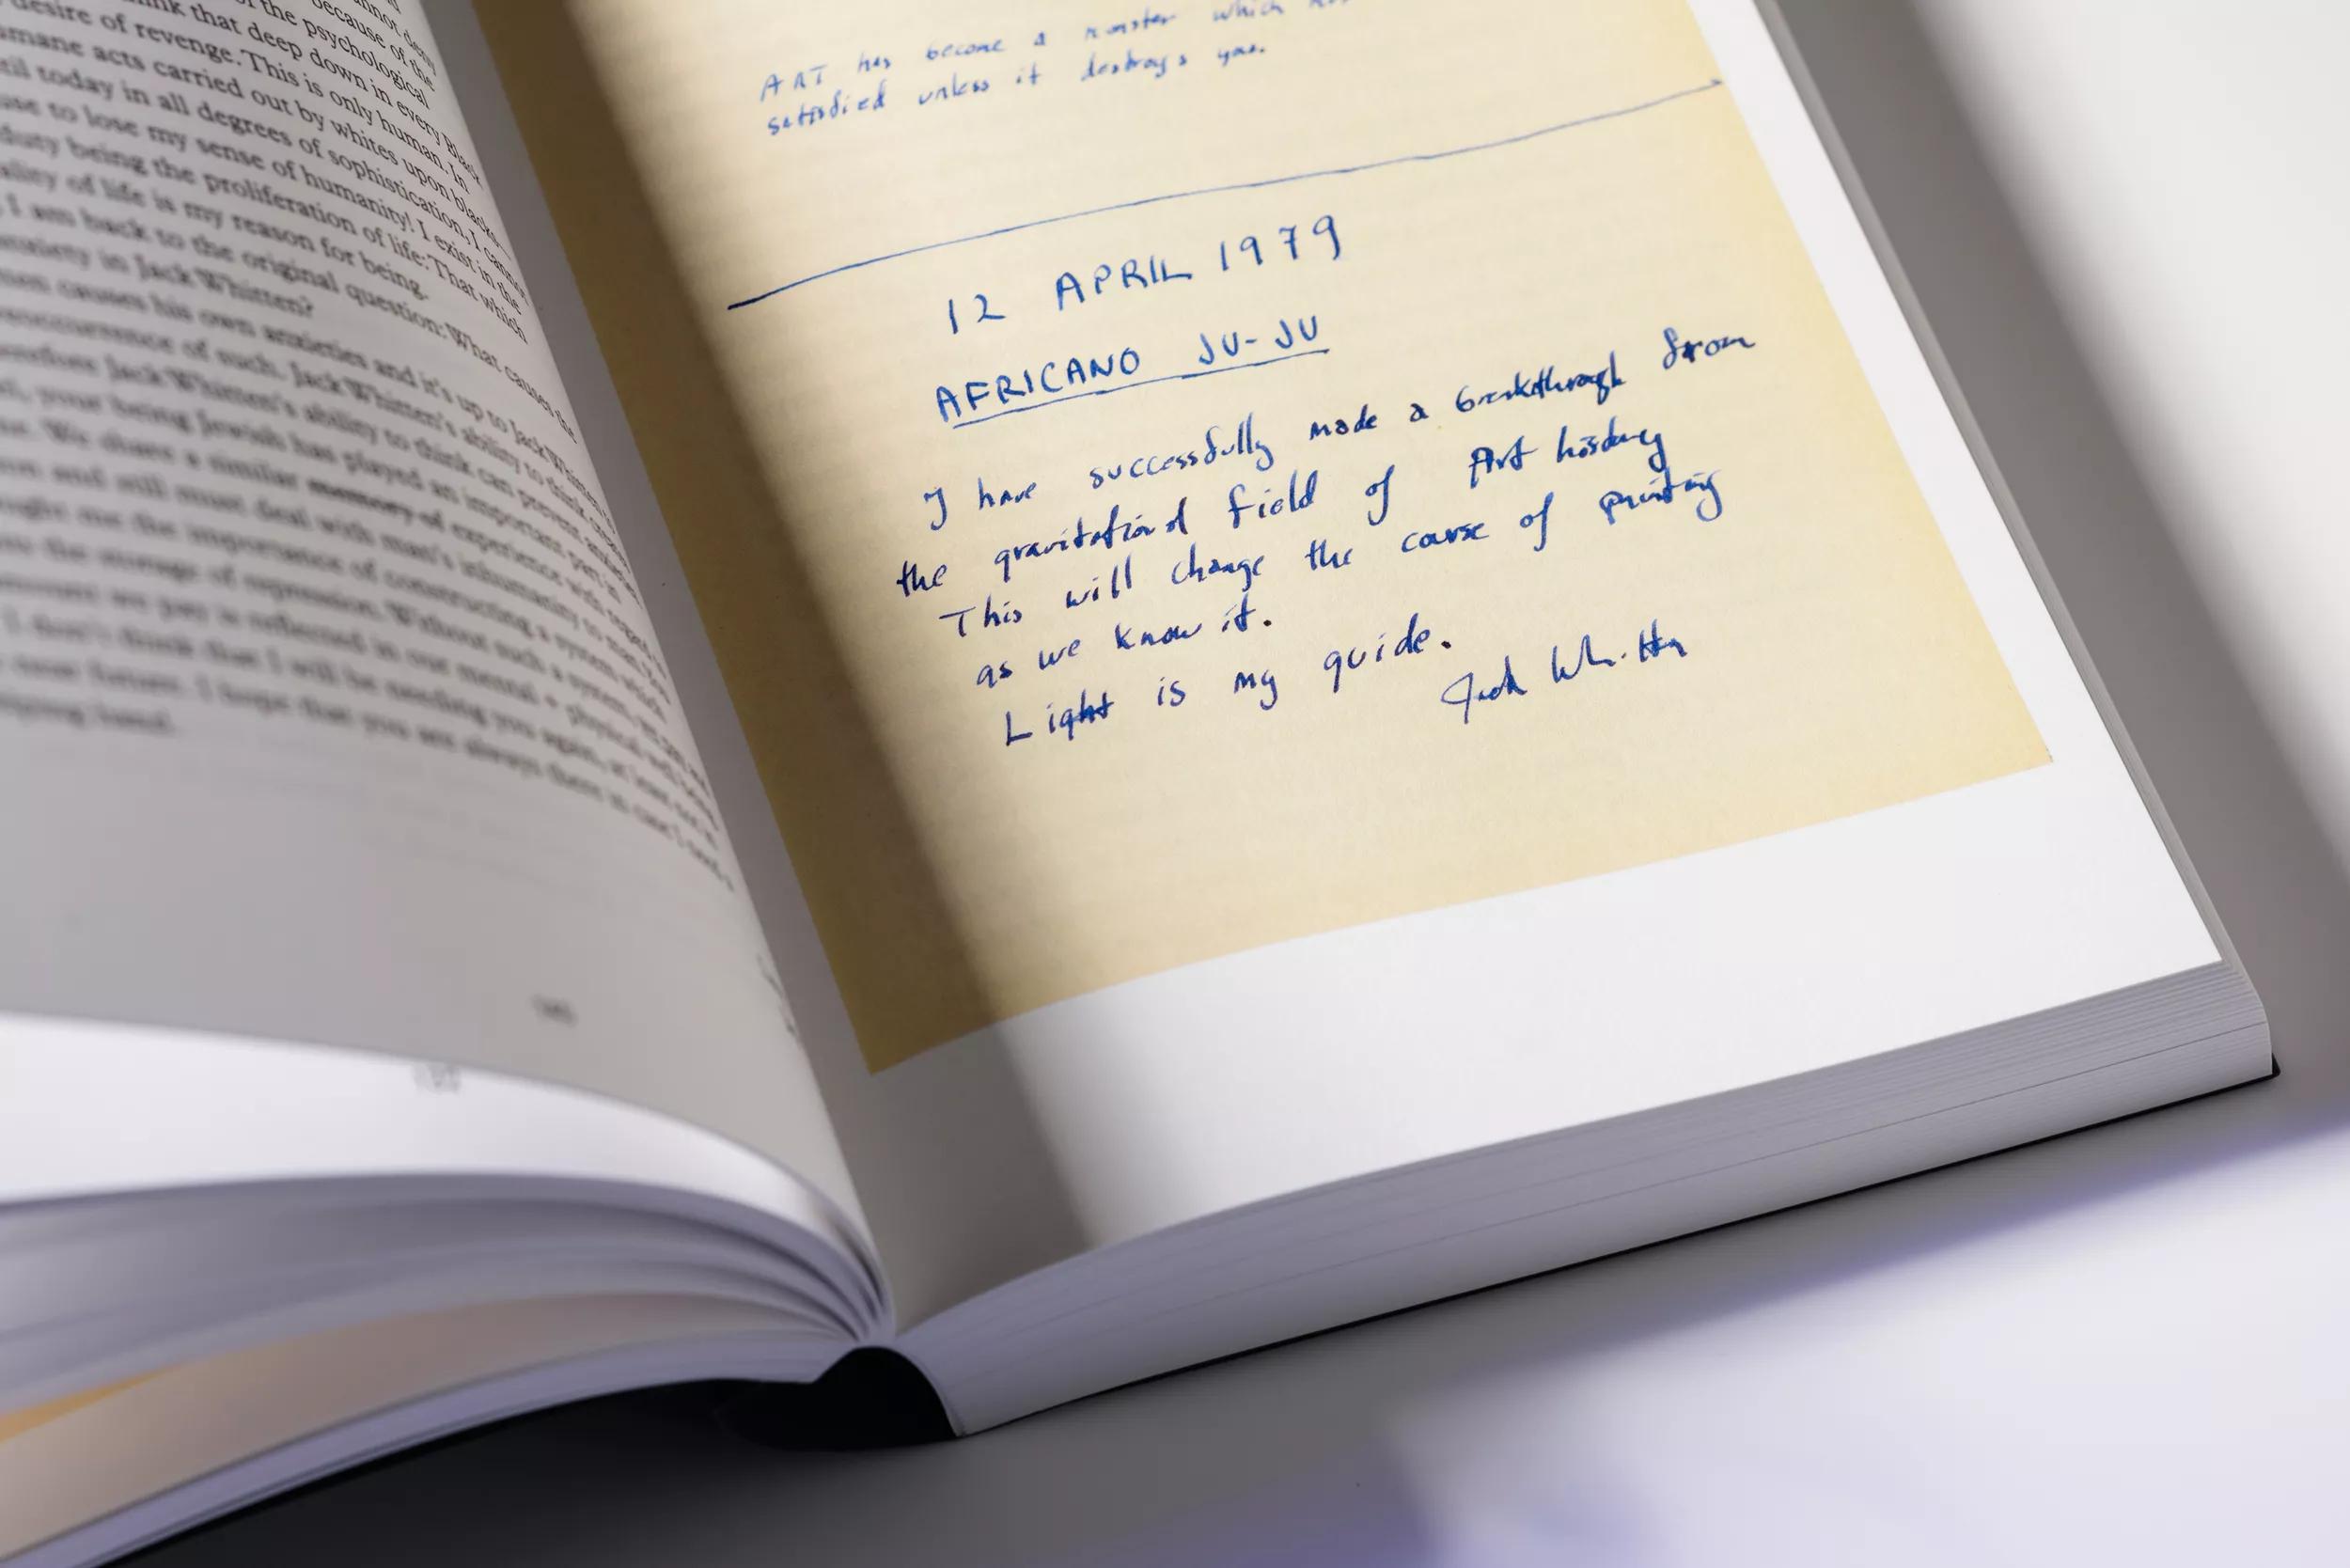 because of the
of the psychological
think that deep down in every Black
desire of revenge. This is only human. In
acts carried out by whites upon blacks
today in all degrees of sophistication, I cannot
to lose my sense of humanity! I exist in the
duty being the proliferation of life: That which
of life is my reason for being.
I am back to the original question: What causes the
in Jack Whitten?
causes his own anxieties and it's up to Jack Whitten
of such. Jack Whitten's ability to think can prevent
Jack Whitten's ability to think
your being Jewish has played an important part in
We share a similar memory of experience with
and still must deal with man's inhumanity to man
me the importance of constructing a system
the storage of repression. Without such a system,
we pay is reflected in our mental + physical
I don't think that I will be needing you again, at least not in
near future. I hope that you are always there in case I need a
helping hand.
ART has become a monster which
satisfied unless it destroys you.
12 APRIL 1979
AFRICANO JU-JU
I have successfully made a breakthrough from
the gravitational field of Art history
This will change the course of painting
as we know it.
Light is my guide.
Jack Whitten